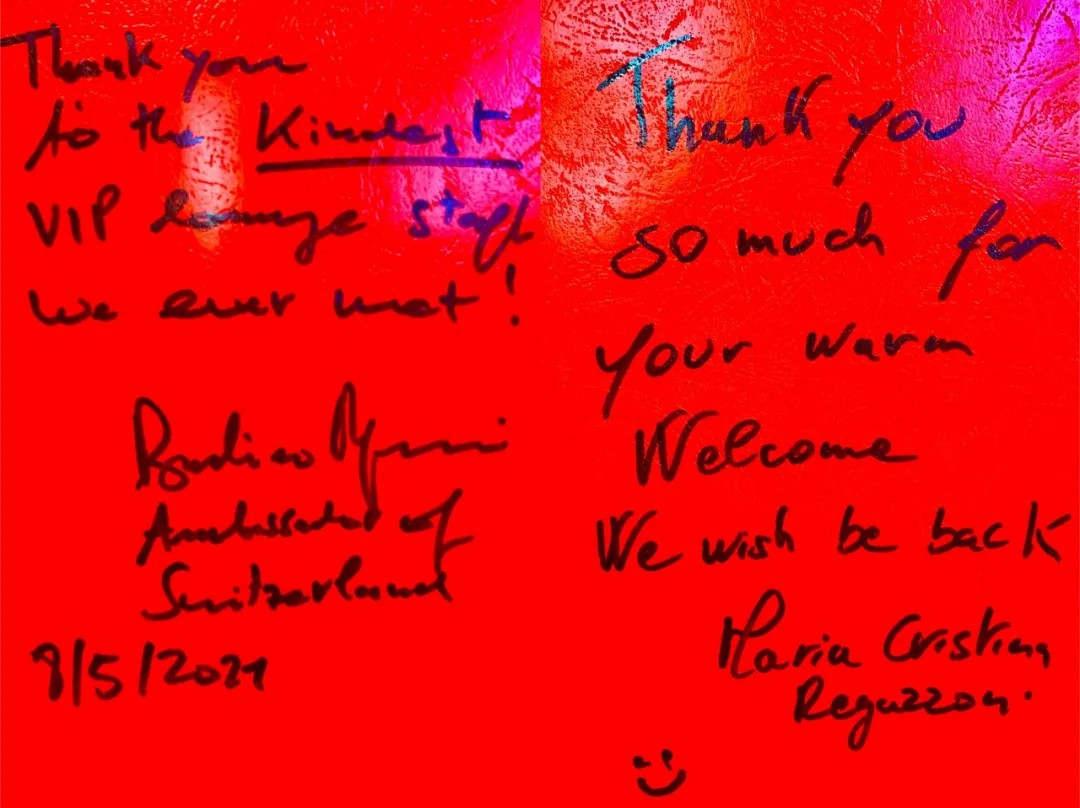 Thank you
to the Kindest
VIP lounge staff
we ever met!
Ambassador of
Switzerland
8/5/2021
Thank you
so much for
your warm
Welcome
We wish be back
Maria Cristina
Reguzzoni